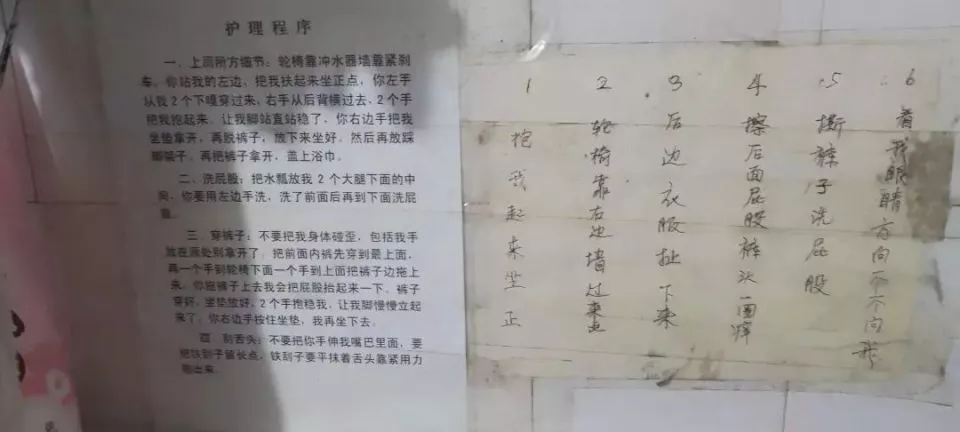 护理程序
一、上厕所方细节：轮椅靠冲水器墙靠紧刹
车。你站我的左边，把我扶起来坐正点，你左手
从我2个下嘎穿过来，右手从后背横过去，2个手
把我抱起来，让我脚站直站稳了，你右边手把我
坐垫拿开，再脱裤子，放下来坐好。然后再放踩
脚凳子。再把裤子拿开，盖上浴巾。
二、洗屁股：把水瓢放我2个大腿下面的中
间，你要用左边手洗，洗了前面后再到下面洗屁
股。
三、穿裤子：不要把我身体碰歪，包括我手
放在原处别拿开了，把前面内裤先穿到最上面，
再一个手到轮椅下面一个手到上面把裤子边拖上
来。你拖裤子上去我会把屁股抬起来一下，裤子
穿好，坐垫放好，2个手抱稳我，让我脚慢慢立起
来了，你右边手按住坐垫，我再坐下去。
四、刮舌头：不要把你手伸我嘴巴里面，要
把铁刮子留长点，铁刮子要平抹着舌头靠紧用力
刮出来。
1 抱我起来坐正
2 轮椅靠右边墙过来
3 后边衣服扯下来
4 擦后面屁股裤头面
5 裤子洗屁股
6 看我眼睛方向而不问我